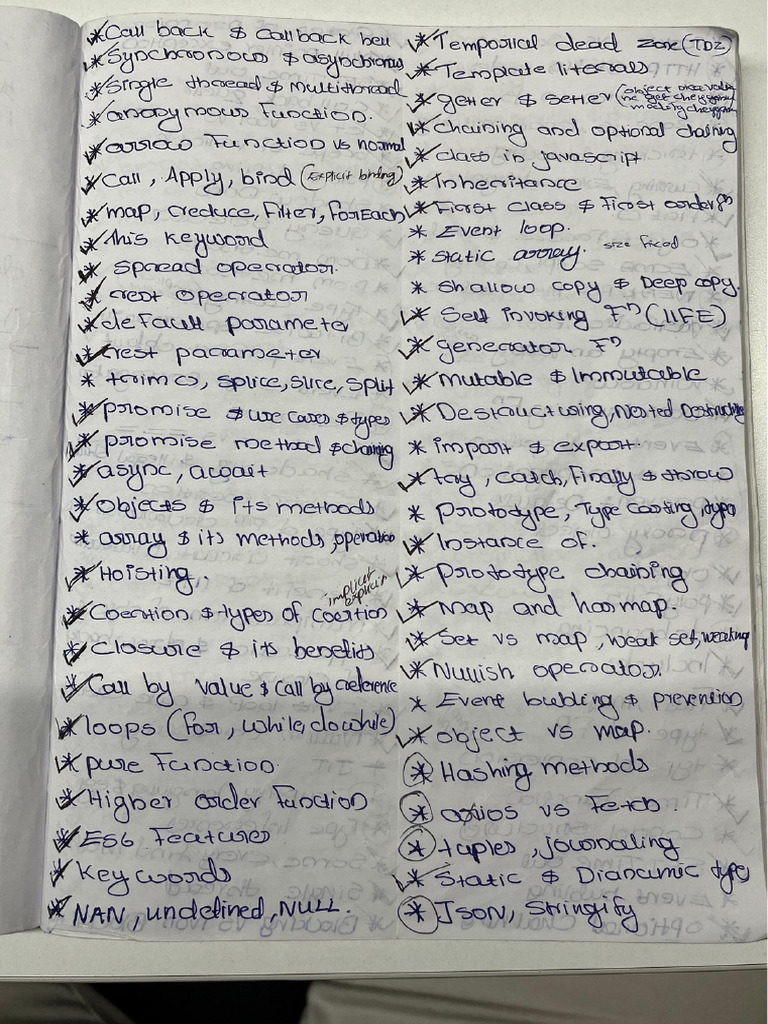 * Call back & Callback hell
* Synchronous & asynchronous
* Single thread & multithread
* anonymous Function.
* arrow Function vs normal
* Call, Apply, bind (Explicit binding)
* map, reduce, Filter, ForEach
* this keyword
* spread operator.
* rest operator
* default parameter
* rest parameter
* trim(), splice, slice, split
* promise & use cases & types
* promise method & chaining
* async, await
* objects & its methods
* array & its methods, operation
* Hoisting.
implicit
explicit
* Coertion & types of coertion
* Closure & its benefits
* Call by value & call by reference
* loops (for, while, do while)
* pure Function.
* Higher order Function
* ES6 Features
* Keywords
* NAN, undefined, NULL.
* Temporical dead zone (TDZ)
* Template literals
* getter & setter (object
* chaining and optional chaining
* class in javascript
* Inheritance
* First class & First order Fn
* Event loop.
* static array. size fixed
* Shallow copy & Deep copy.
* Self invoking Fn (IIFE)
* generator Fn
* mutable & Immutable
* Destructuring, Nested Destructuring
* import & export.
* try, catch, Finally & throw
* Prototype, Type casting, typeo
* Instance of.
* Prototype chaining
* Map and hasmap.
* Set vs map, weak set, weakmap
* Nullish operator.
* Event bubling & prevention
* object vs map.
* Hashing methods
* axios vs Fetch.
* tuples, journaling
* Static & Dianamic type
* Json, Stringify